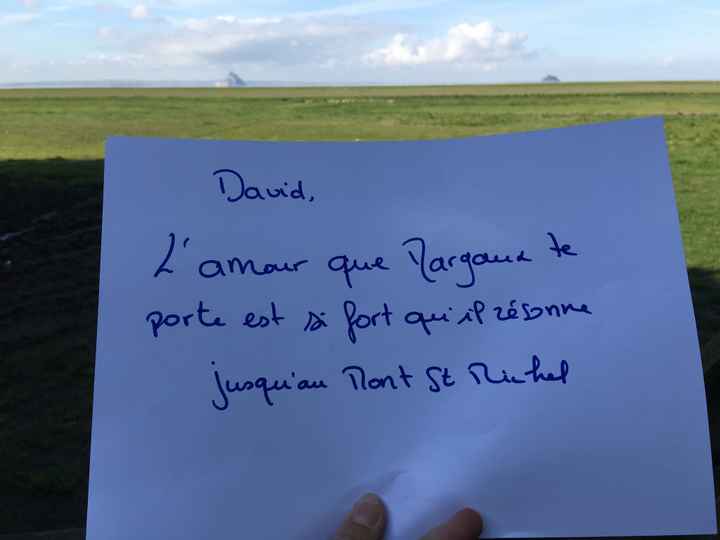 David,
L'amour que Margaux te
porte est si fort qu'il résonne
jusqu'au Mont St Michel